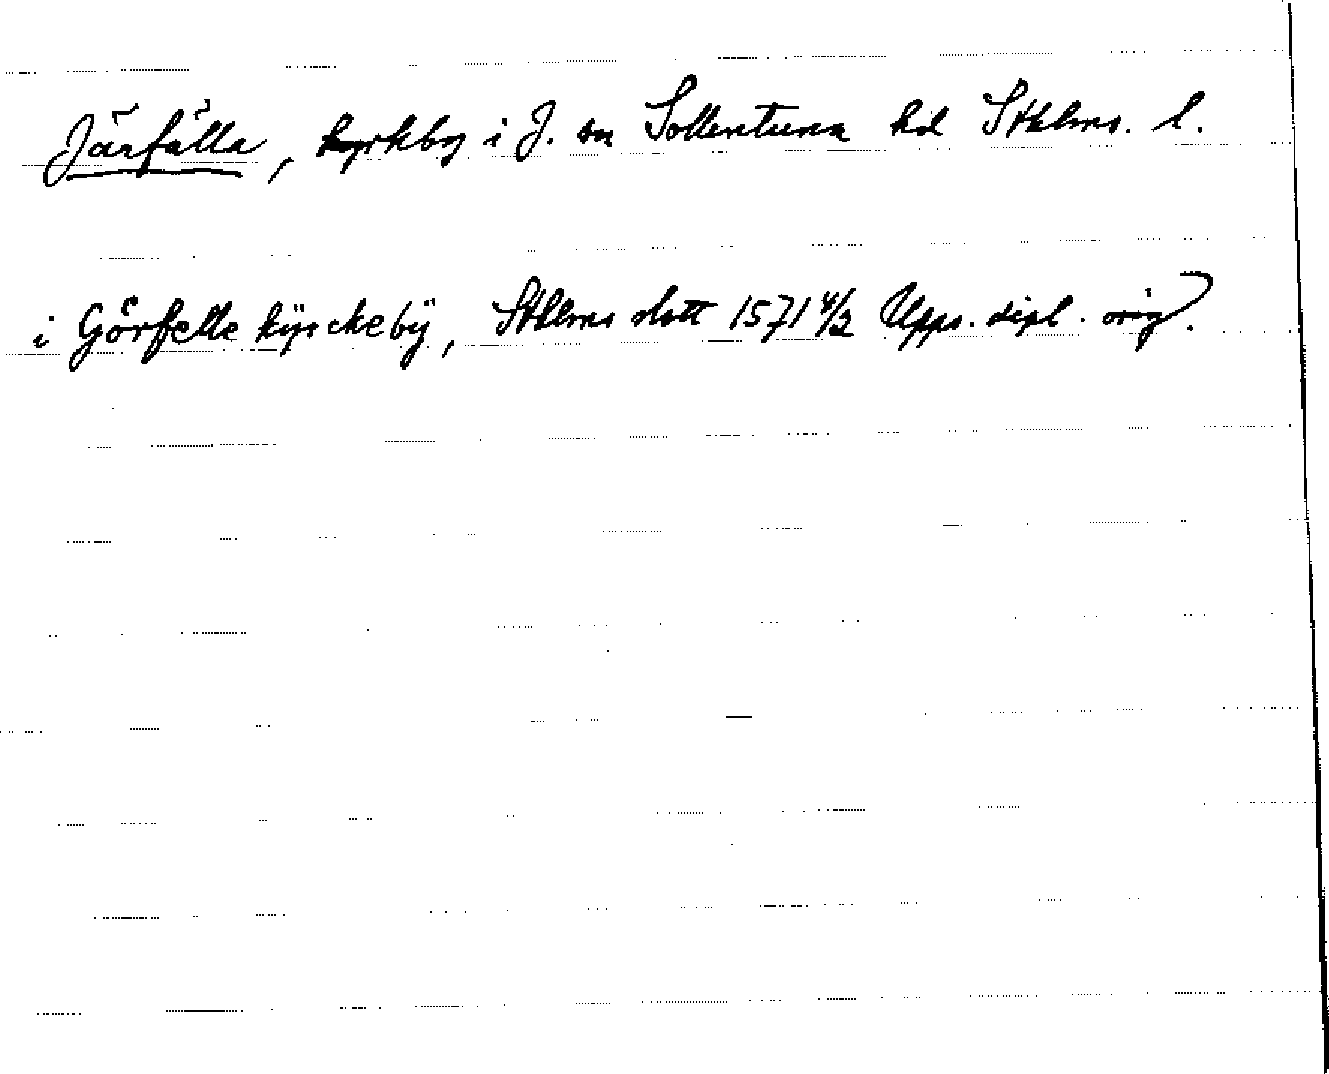 Järfälla, kyrkby i J. sn Sollentuna hd Sthlms. l.
i Görfelle kÿrckebÿ, Sthlms slott 1571 4/2 Upps. dipl. orig.